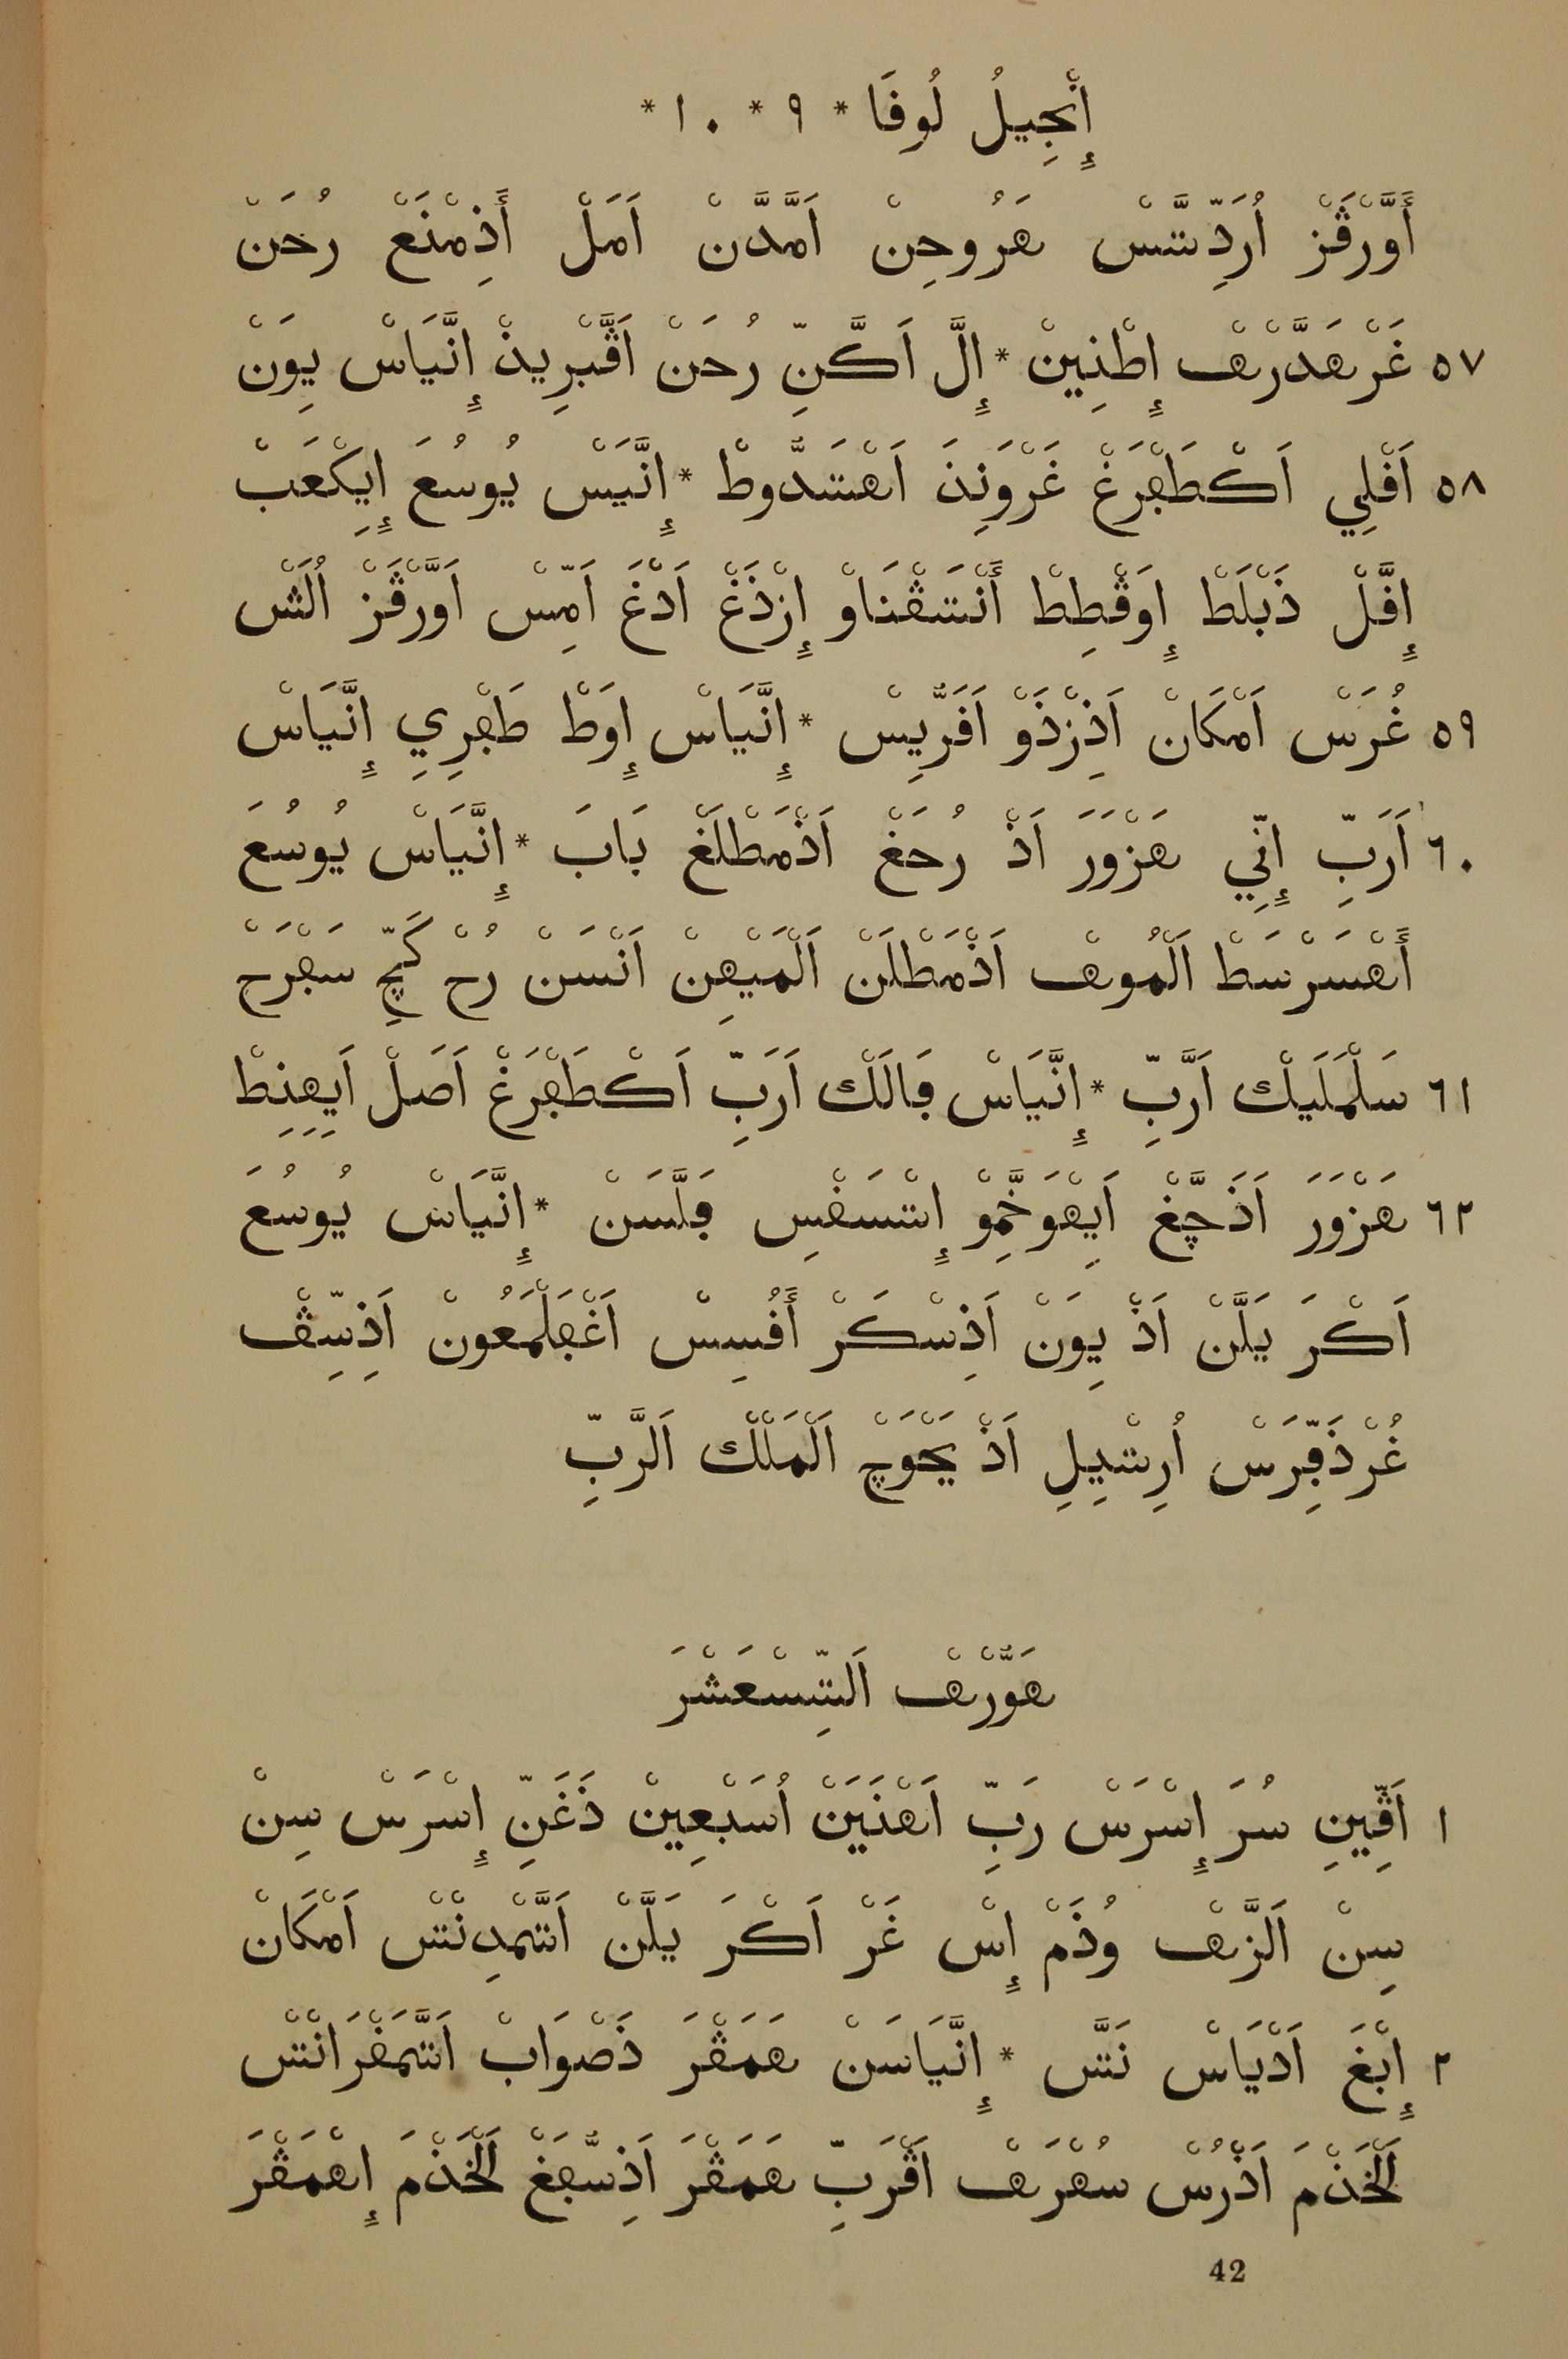 إِنْجِيلُ لُوفَا * ٩ * ١٠ *
أَوَّرْڤَزْ اُرَدِّتسَّسْ هَرُوحِنْ اَمَّدَّنْ اَمَلْ أَذِمْنَعْ رُحَنْ
٥٧ غَرْهَدَّرْهْ إِطْنِينْ * إِلَّ اَكَّنِّ رُحَنْ اَڤَّبْرِيذْ إِنَّيَاسْ يِوَنْ
٥٨ اَڢْلِي اَكْطَڢْرَغْ غَرْوَنِذَ اَهْتسَدُّوطْ * إِنَّيَسْ يُوسُعَ إِيِكْعَبْ
إِڢَّلْ ذَبْلَطْ إِوَڤْطِطْ أَنْتسَڤْنَاوْ إِزْذَغْ اَدْغَ اَمِّسْ اَوَّرْڤَزْ اُلَشْ
٥٩ غُرَسْ اَمْكَانْ اَذِزْذَوْ اَڢَرُّيِسْ * إِنَّيَاسْ إِوَطْ طَڢْرِيِ إِنَّيَاسْ
٦٠ اَرَبِّ إِنِّي هَزْوَرَ اَذْ رُحَغْ اَذْمَطْلَغْ بَابَ * إِنَّيَاسْ يُوسُعَ
أَهْسَرْسَطْ اَلْمُوهْ اَذْمَطْلَنْ اَلْمَيْهِنْ اَنْسَنْ رُحْ كَچِّ سَڢْرَحْ
٦١ سَلْمَلَيِكْ اَرَّبِّ * إِنَّيَاسْ ڢَالَكْ اَرَبِّ اَكْطَڢْرَغْ اَصَلْ اَيِهِنِطْ
٦٢ هَزْوَرَ اَذَجَّغْ اَيِهْوَخَّمِوْ إِتسَڢْسِ ڢَلَّسَنْ * إِنَّيَاسْ يُوسُعَ
اَكْرَ يَلَّنْ اَذْ يِوَنْ اَذِسْكَرْ أَڢُسِسْ اَغْڢَلْمَعُونْ اَذِسِّڤْ
غُرْذَڢِّرَسْ اُرِتسِيلِ اَذْ يَحْوَجْ اَلْمَلْكْ اَلرَّبِّ
هَوُّرْهْ اَلتِّسْعَشْرَ
١ اَڤِّينِ سُرَ إِسْرَسْ رَبِّ اَهْنَيَنْ اُسَبْعِينْ ذَغَنِّ إِسْرَسْ سِنْ
سِنْ اَلزَّهْ وُذَمْ إِسْ غَرْ اَكْرَ يَلَّنْ اَتسَّمْدِنْتسْ اَمْكَانْ
٢ إِبْغَ اَدْيَاسْ نَتسَّ * إِنَّيَاسَنْ هَمَڤْرَ ذَصْوَابْ اَتسَّمَڢْرَانْتسْ
اَلْخَذْمَ اَذْرُسْ سُهْرَهْ اَڤْرَبِّ هَمَڤْرَ اَذِسُّڢَغْ اَلْخَذْمَ إِهْمَڤْرَ
42